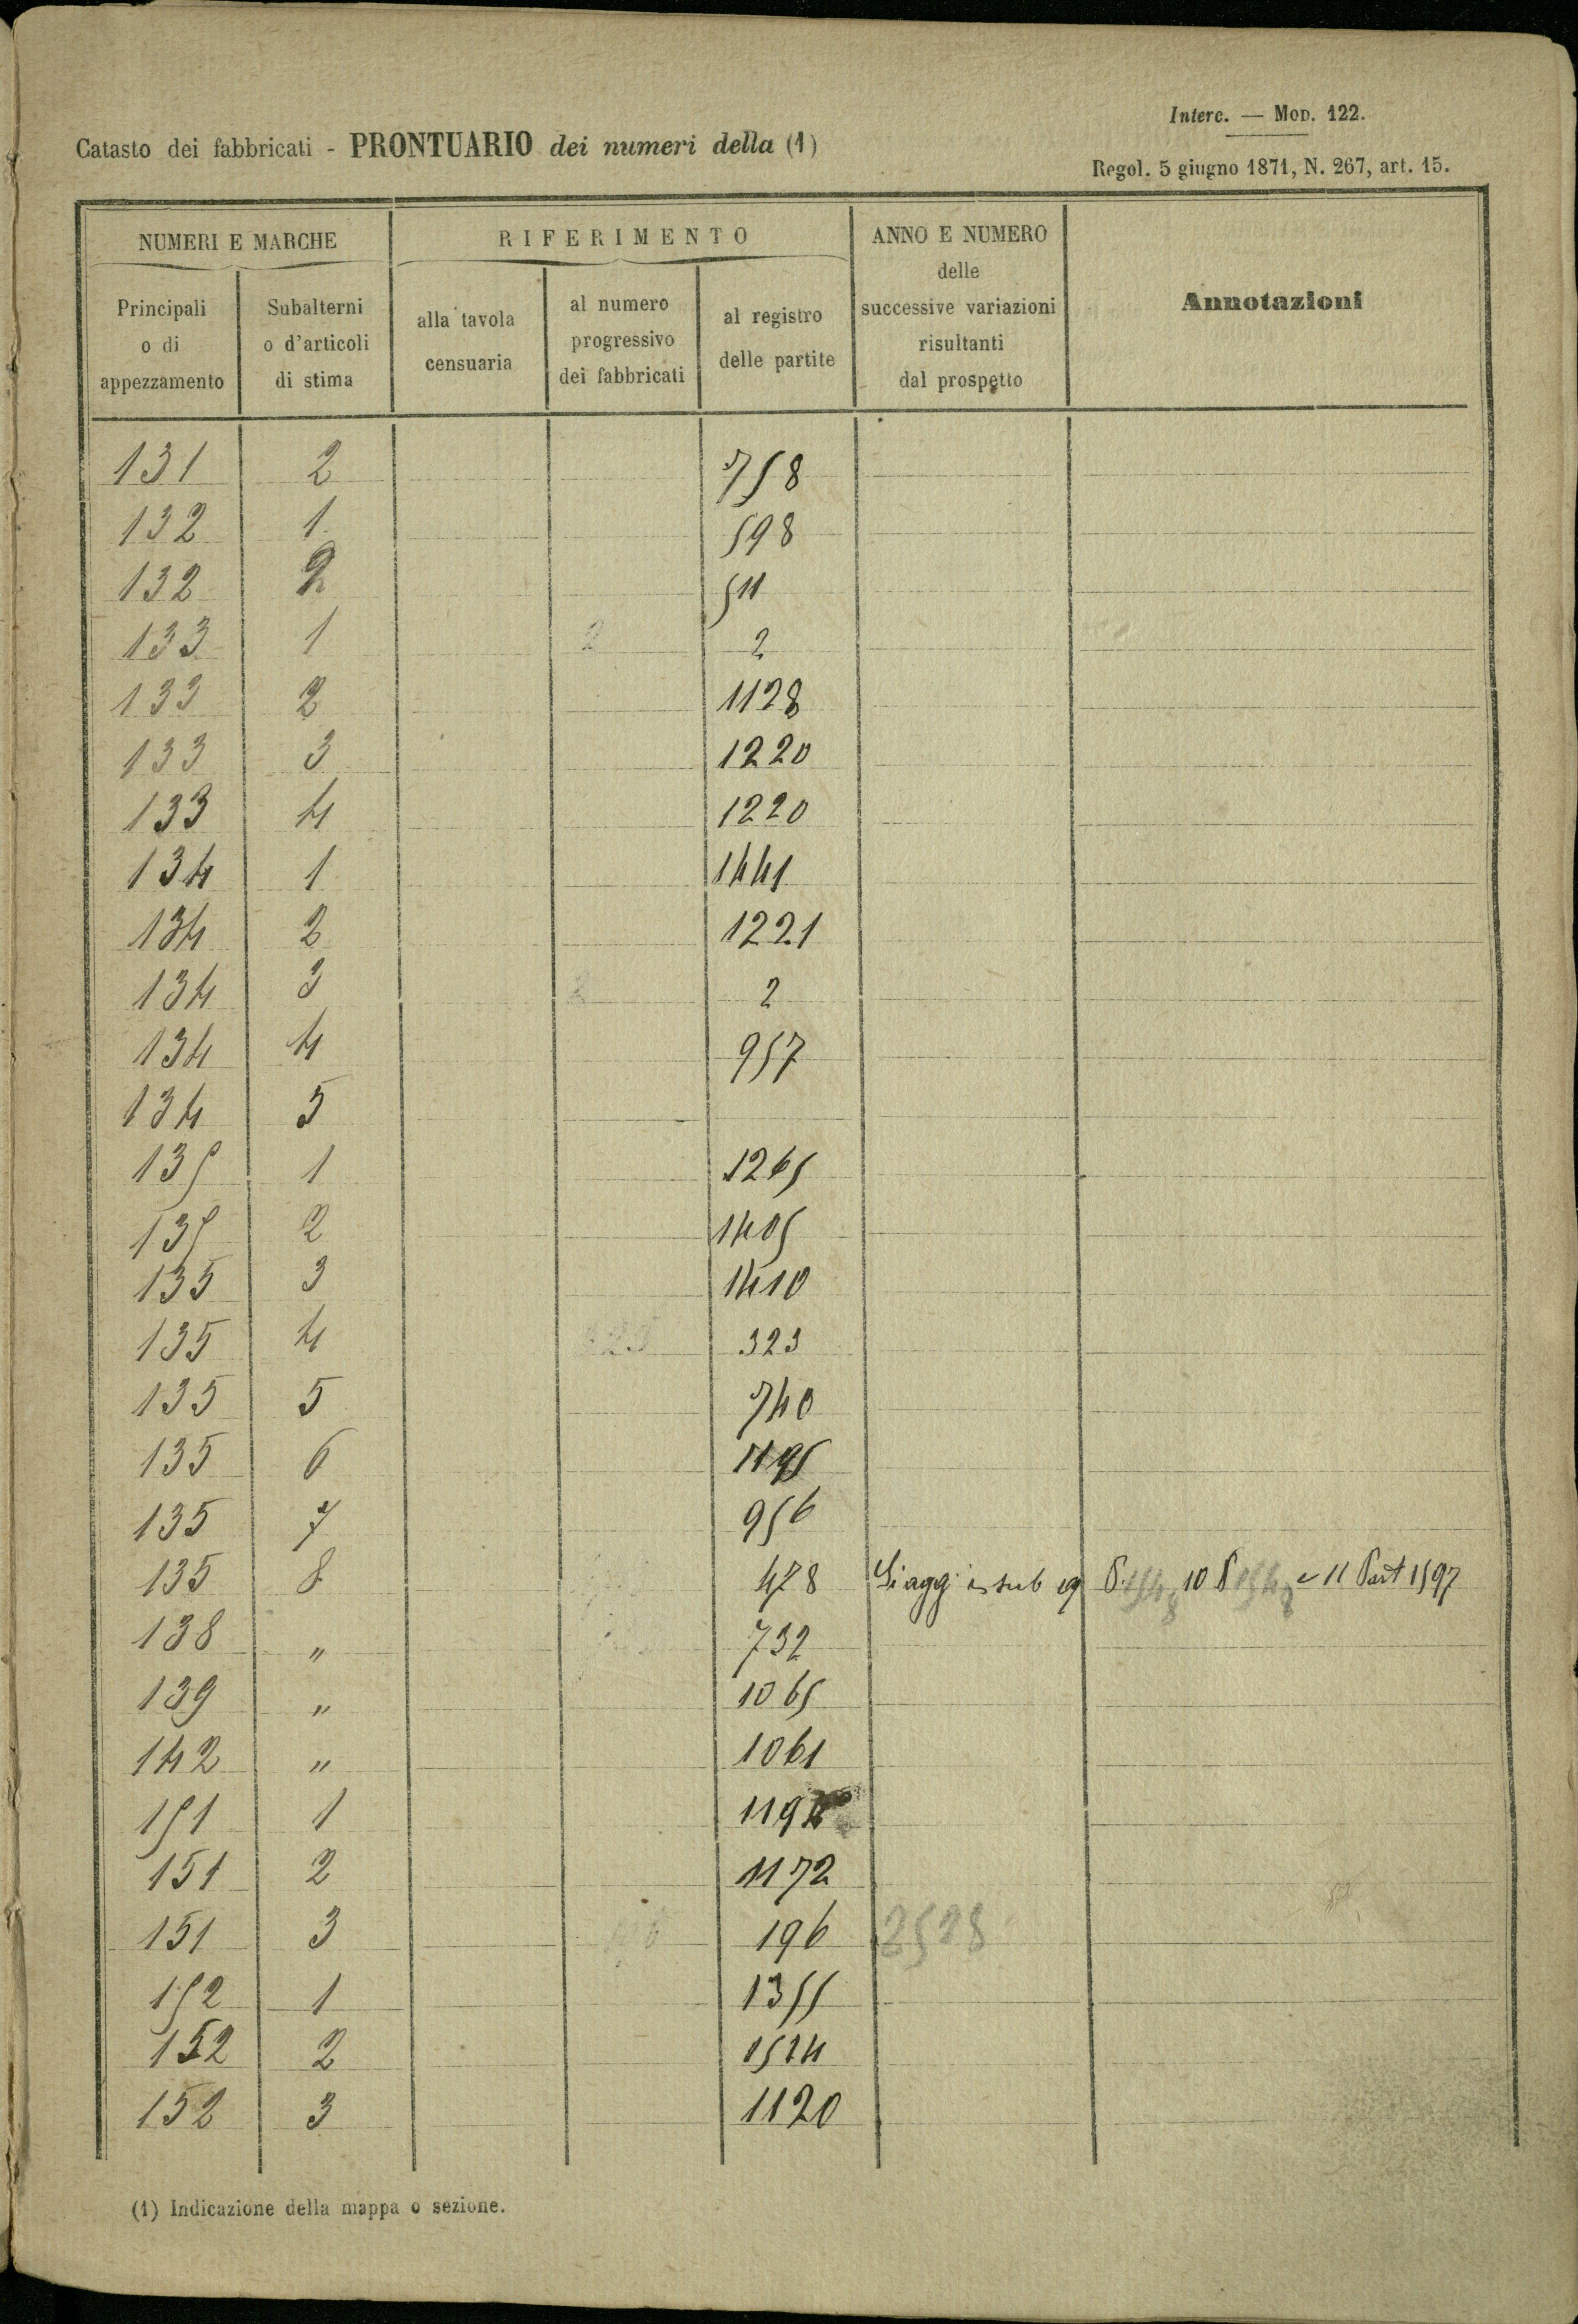 Interc. — Mod. 122.
Catasto dei fabbricati - PRONTUARIO dei numeri della (1)
Regol. 5 giugno 1871, N. 267, art. 15.
NUMERI E MARCHE
RIFERIMENTO
ANNO E NUMERO
delle
successive variazioni
risultanti
dal prospetto
Annotazioni
Principali
o di
appezzamento
Subalterni
o d'articoli
di stima
alla tavola
censuaria
al numero
progressivo
dei fabbricati
al registro
delle partite
131 2 758
132 1 598
132 2 511
133 1 2 2
133 2 1128
133 3 1220
133 4 1220
134 1 1441
134 2 1221
134 3 2 2
134 4 957
134 5
135 1 1265
135 2 1405
135 3 1410
135 4 323 323
135 5 740
135 6 1195
135 7 956
135 8 478 Si agg sub 10 e 11 Part 1597
138 " 732
139 " 1065
142 " 1061
151 1 1194
151 2 1172
151 3 196 196 2528
152 1 1355
152 2 1524
152 3 1120
(1) Indicazione della mappa o sezione.